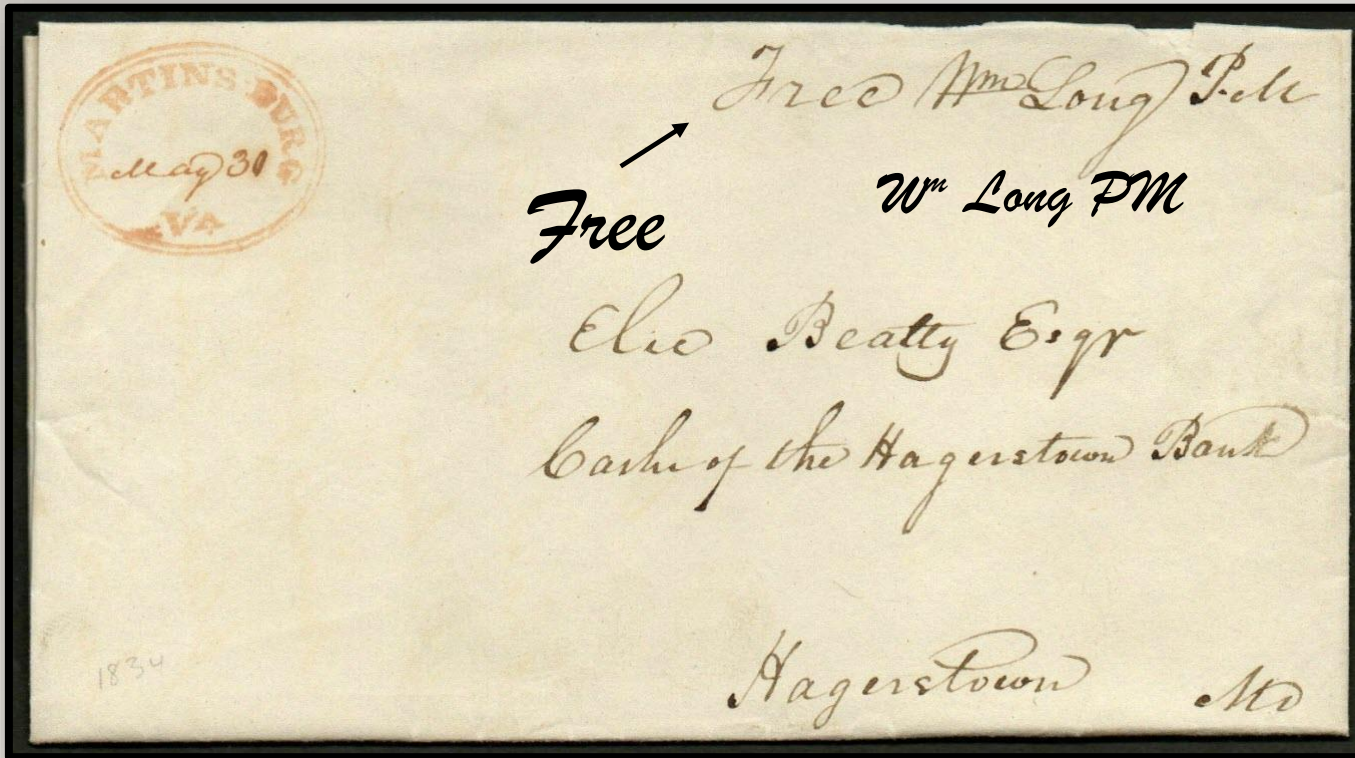 MARTINSBURG
May 30
VA
Free Wm Long P.M
Free
Wm Long PM
Elie Beatty Esqr
Cashr of the Hagerstown Bank
Hagerstown Md
1834